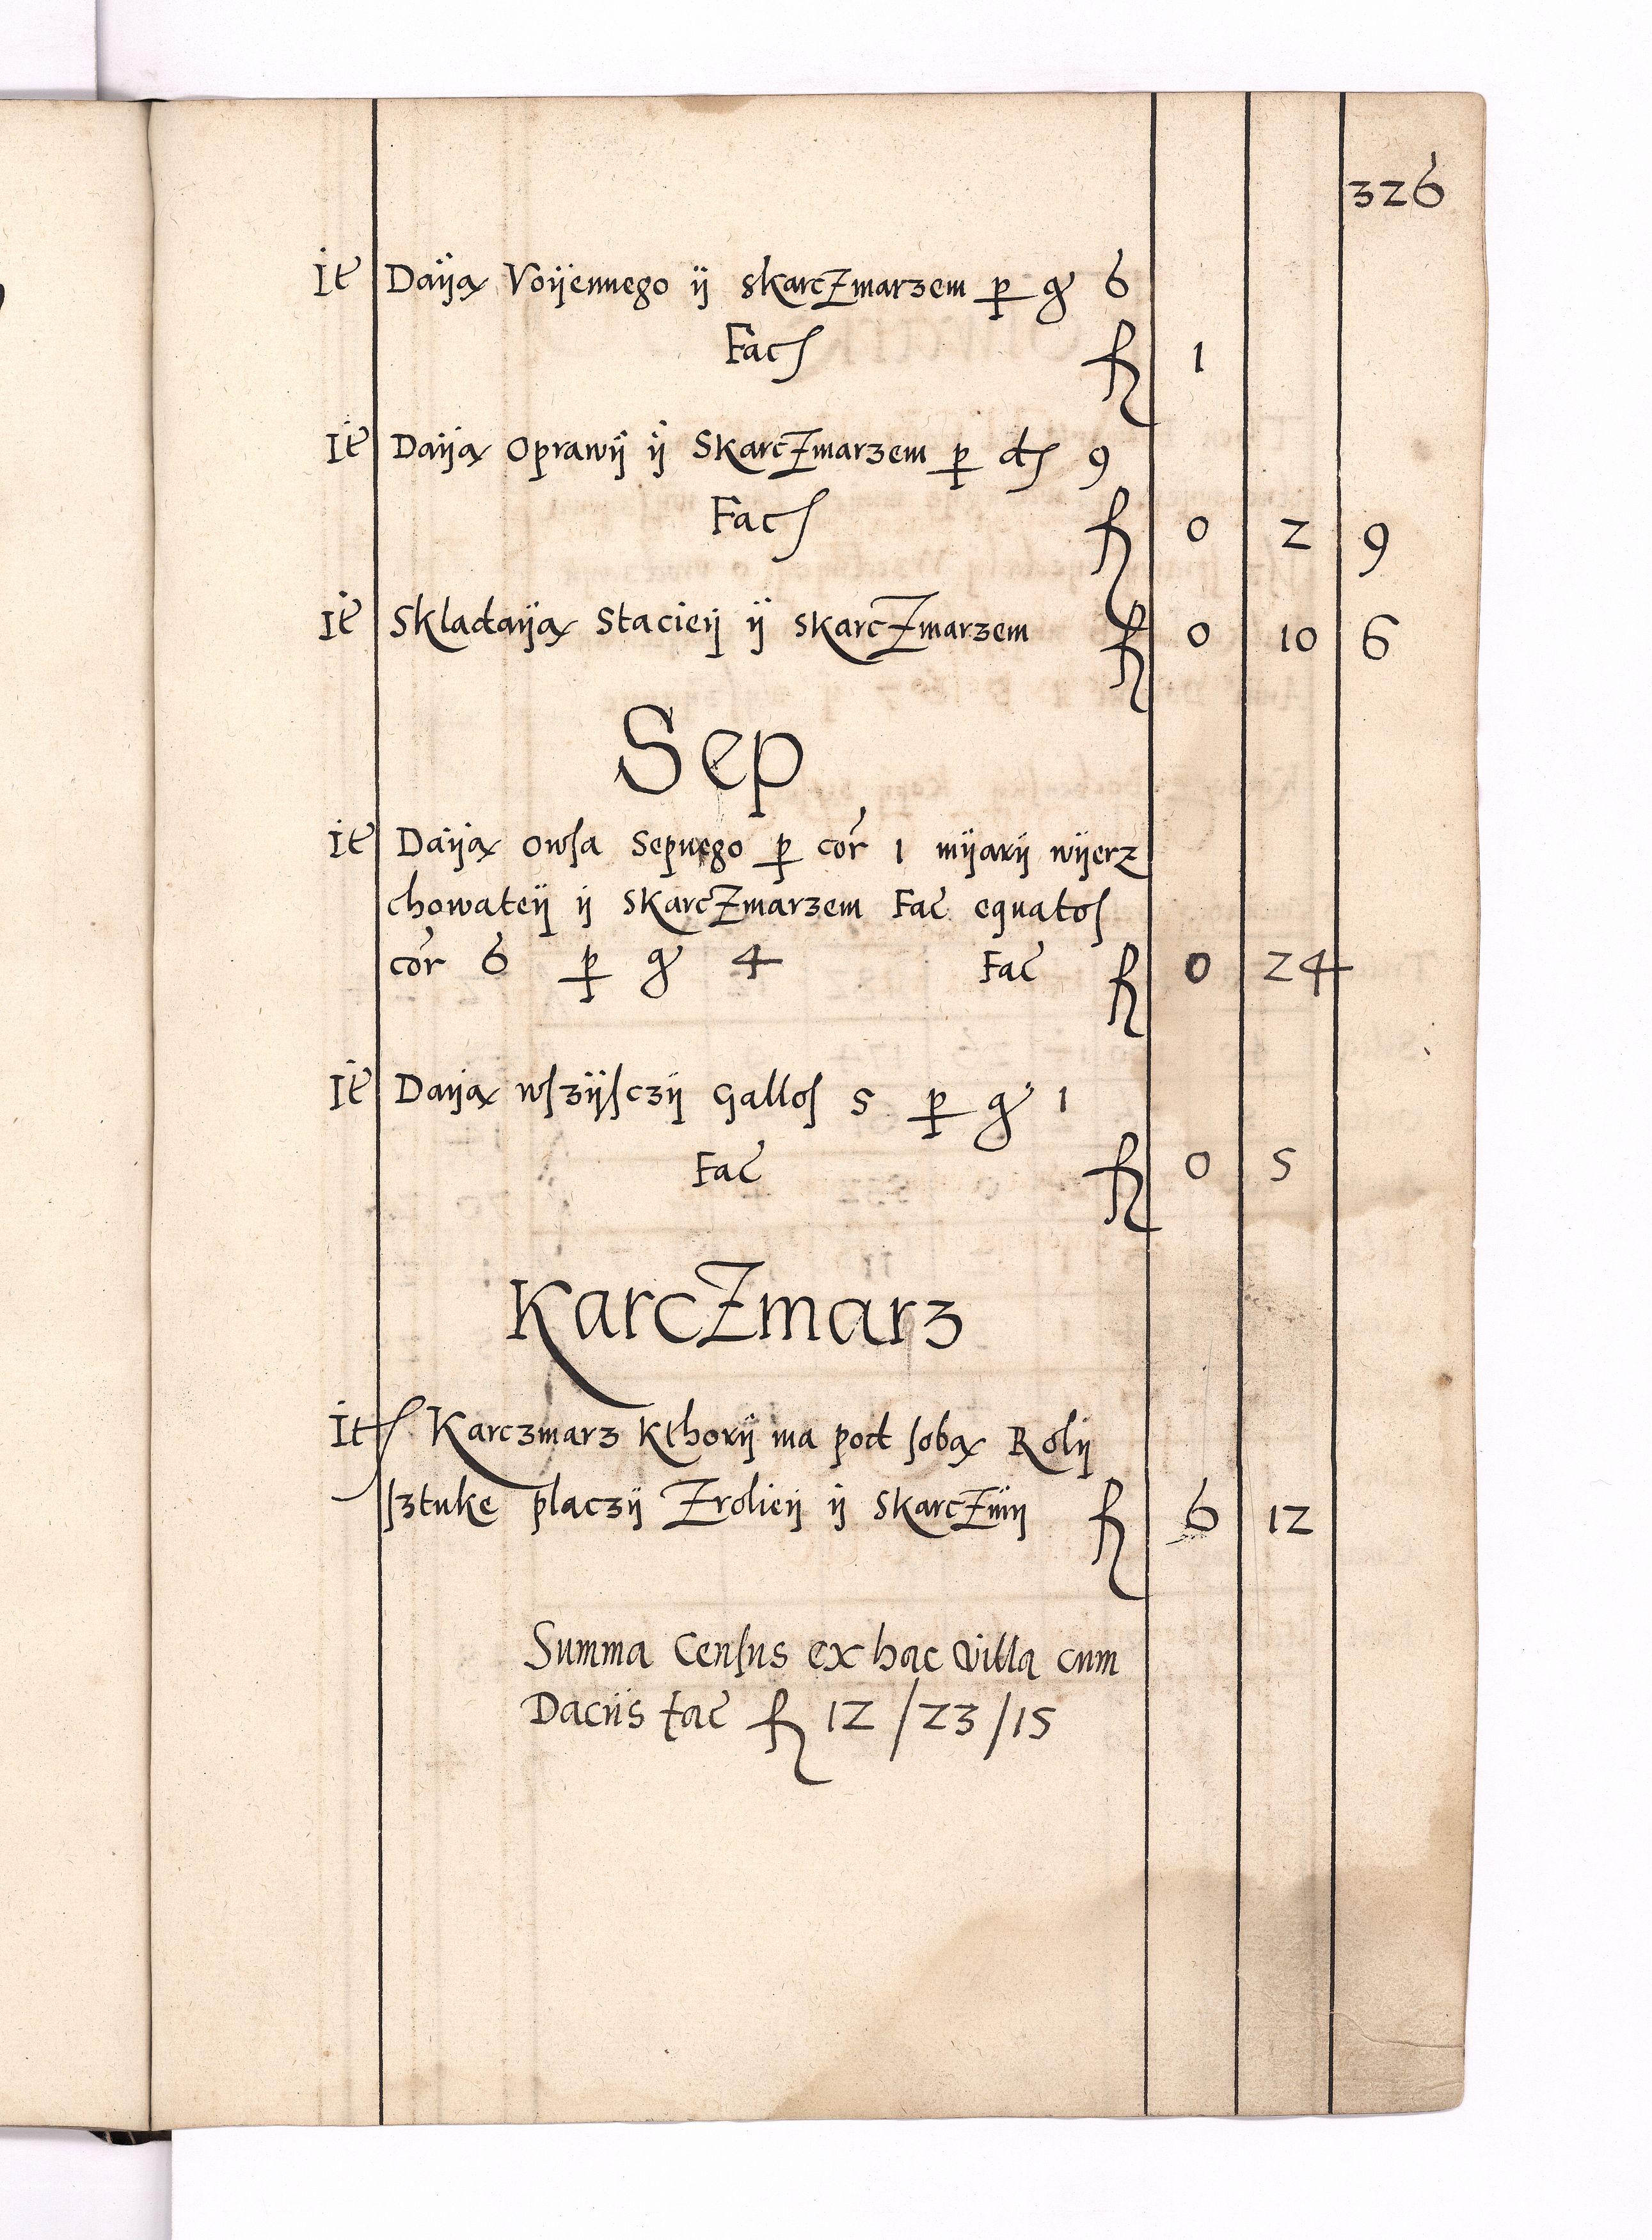 326
It Daÿax Voÿennego ÿ skarcZmarzem p gr 6
Fac fl 1
It Daÿax Oprawÿ ÿ SkarcZmarzem p d 9
Fac fl 0 2 9
It Skladaÿax Stacieÿ ÿ skarcZmarzem fl 0 10 6
Sep
It Daÿax Owſa Sepnego p cor 1 mÿarÿ wÿerz
chowateÿ ÿ skarcZmarzem Fac equatoſ
cor 6 p gr 4 Fac fl 0 24
It Daÿax wſzÿſczÿ Galloſ 5 p gr 1
Fac fl 0 5
KarcZmarz
It Karczmarz Kthorÿ ma pod ſobax Rolÿ
ſztuke placzÿ Zrolieÿ ÿ skarcZmÿ fl 6 12
Summa Cenſus ex hac villa cum
Daciis fac fl 12 / 23 / 15